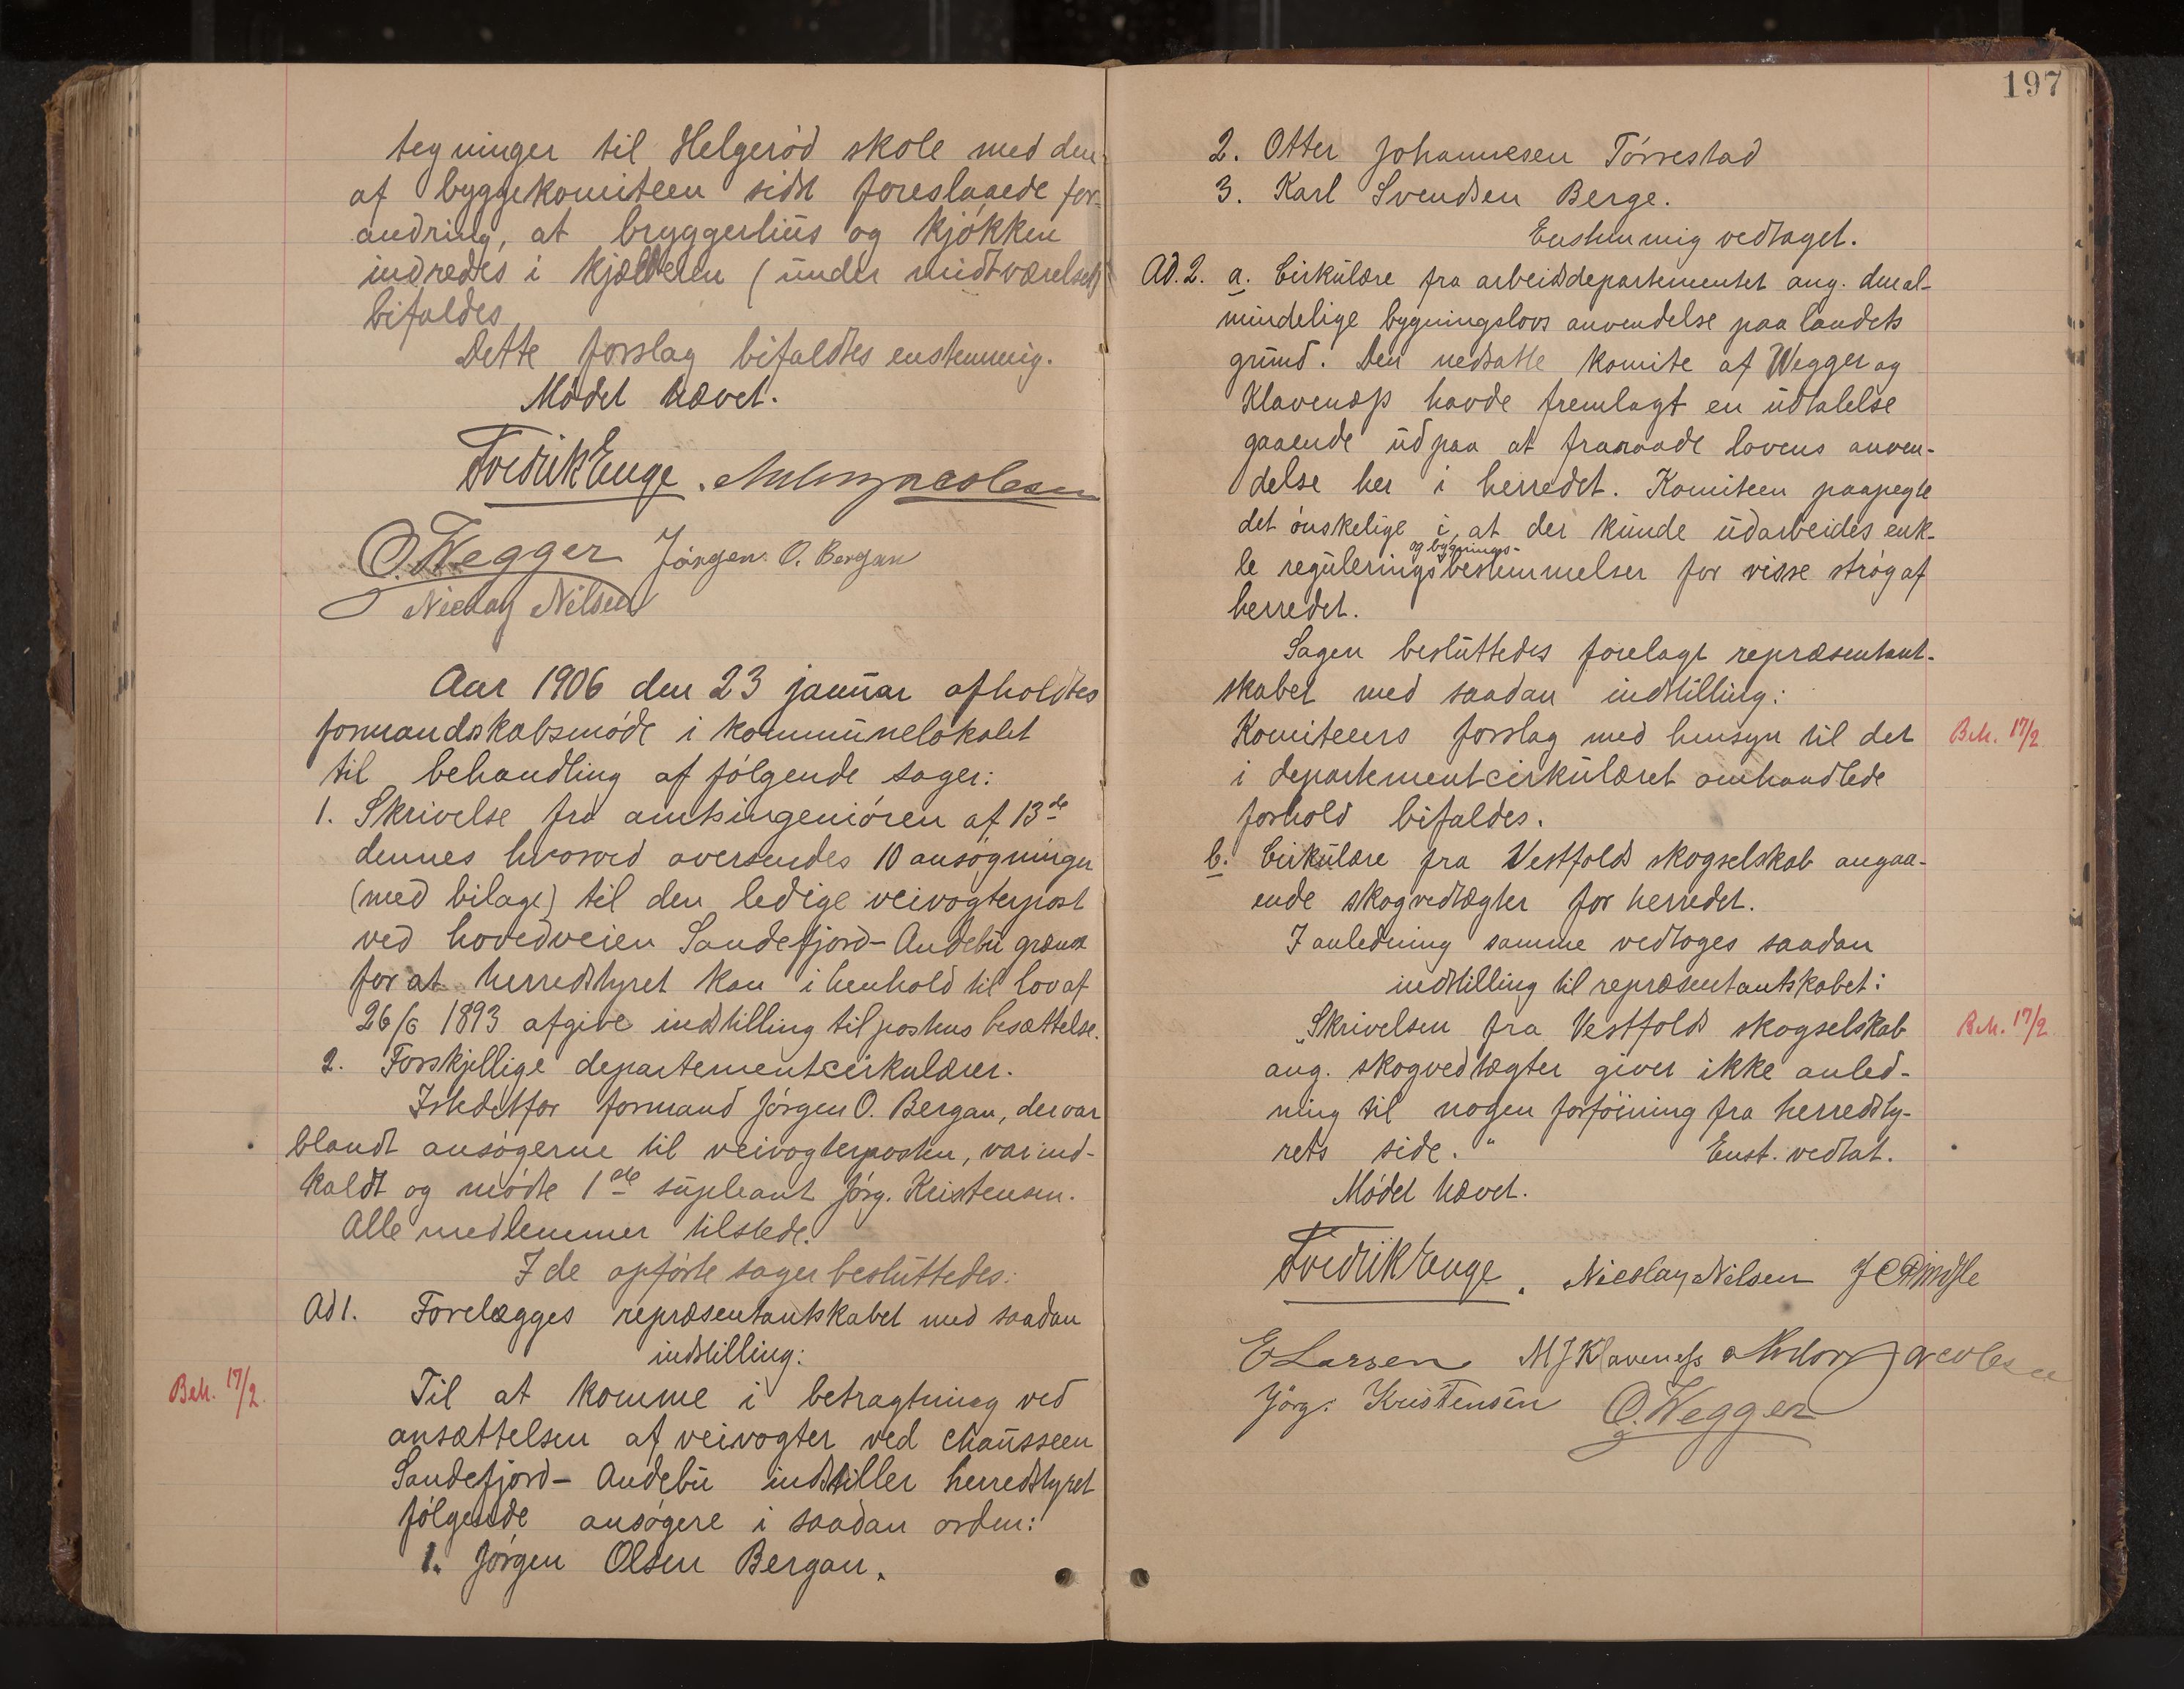 tegninger til Helgerød skole med den
af byggekomiteen sidst foreslaaede for-
andring, at bryggerhus og kjøkken
indredes i kjælderen (under midtværelset)
bifaldes
Dette forslag bifaldtes enstemmig.
Mødet hævet.
Fredrik Enge. Anton Jacobsen
O. Wegger Jørgen O. Bergan
Nicolay Nilsen
Aar 1906 den 23 januar afholdtes
formandskabsmøde i kommunelokalet
til behandling af følgende sager:
1. Skrivelse fra amtsingeniøren af 13de
dennes hvorved oversendes 10 ansøgninger
(med bilage) til den ledige veivogterpost
ved hovedveien Sandefjord-Andebu grænse
for at herredstyret kan i henhold til lov af
26/6 1893 afgive indstilling til postens besættelse.
2. Forskjellige departementcirkulærer.
Istedetfor formand Jørgen O. Bergan, der var
blandt ansøgerne til veivogterposten, var ind-
kaldt og mødte 1ste supleant Jørg. Kristensen.
Alle medlemmer tilstede.
I de opførte sager besluttedes:
Ad 1. Forelægges repræsentantskabet med saadan
indstilling:
Beh. 17/2. Til at komme i betragtning ved
ansættelsen af veivogter ved chausseen
Sandefjord- Andebu indstiller herredstyret
følgende ansøgere i saadan orden:
1. Jørgen Olsen Bergan.
197
2. Otter Johannesen Tørrestad
3. Karl Svendsen Berge.
Enstemmig vedtaget.
Ad. 2. a. Cirkulære fra arbeidsdepartementet ang. den al-
mindelige bygningslovs anvendelse paa landets
grund. Den nedsatte komite af Wegger og
Klavenæss havde fremlagt en udtalelse
gaaende ud paa at fraraade lovens anven-
delse her i herredet. Komiteen paapegte
det ønskelige i, at der kunde udarbeides enk-
og bygnings-
le reguleringsbestemmelser for visse strøg af
herredet.
Sagen besluttedes forelagt repræsentant-
skabet med saadan indstilling:
Komiteens forslag med hensyn til det Beh. 17/2
i departementcirkulæret omhandlede
forhold bifaldes.
b. Cirkulære fra Vestfolds skogselskab angaa-
ende skogvedtægter for herredet.
I anledning samme vedtoges saadan
indstilling til repræsentantskabet:
„Skrivelsen fra Vestfolds skogselskab Beh. 17/2
ang. skogvedtægter giver ikke anled-
ning til nogen forføining fra herredsty-
rets side." Enst. vedtat.
Mødet hævet.
Fredrik Enge. Nicolay Nilsen
E Larsen M J Klaveness Anton Jacobsen
Jørg. Kristensen O. Wegger